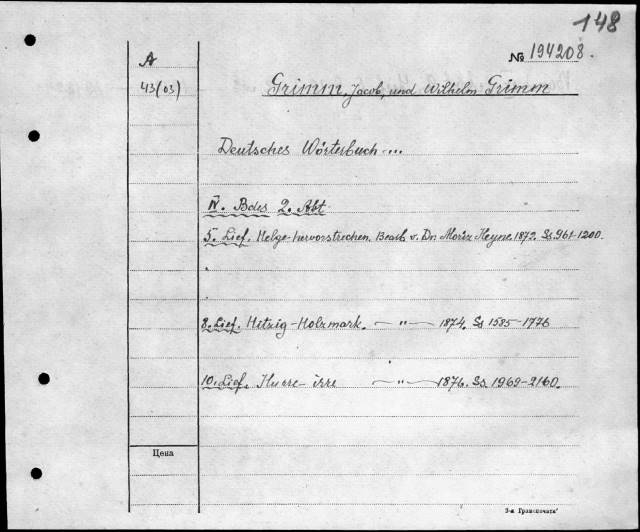 148
№ 194208.
A
43(03)
Grimm, Jacob, und Wilhelm Grimm
Deutsches Wörterbuch ...
IV. Bdes 2. Abt.
5. Lief. Helge-hervorstrechen. Bearb. v. Dr. Moriz Heyne. 1872. Ss. 961-1200.
8. Lief. Hitzig-Holzmark. — " — 1874. Ss 1585-1776
10. Lief. Hurre-irre — " — 1876. Ss. 1969-2160.
Цена